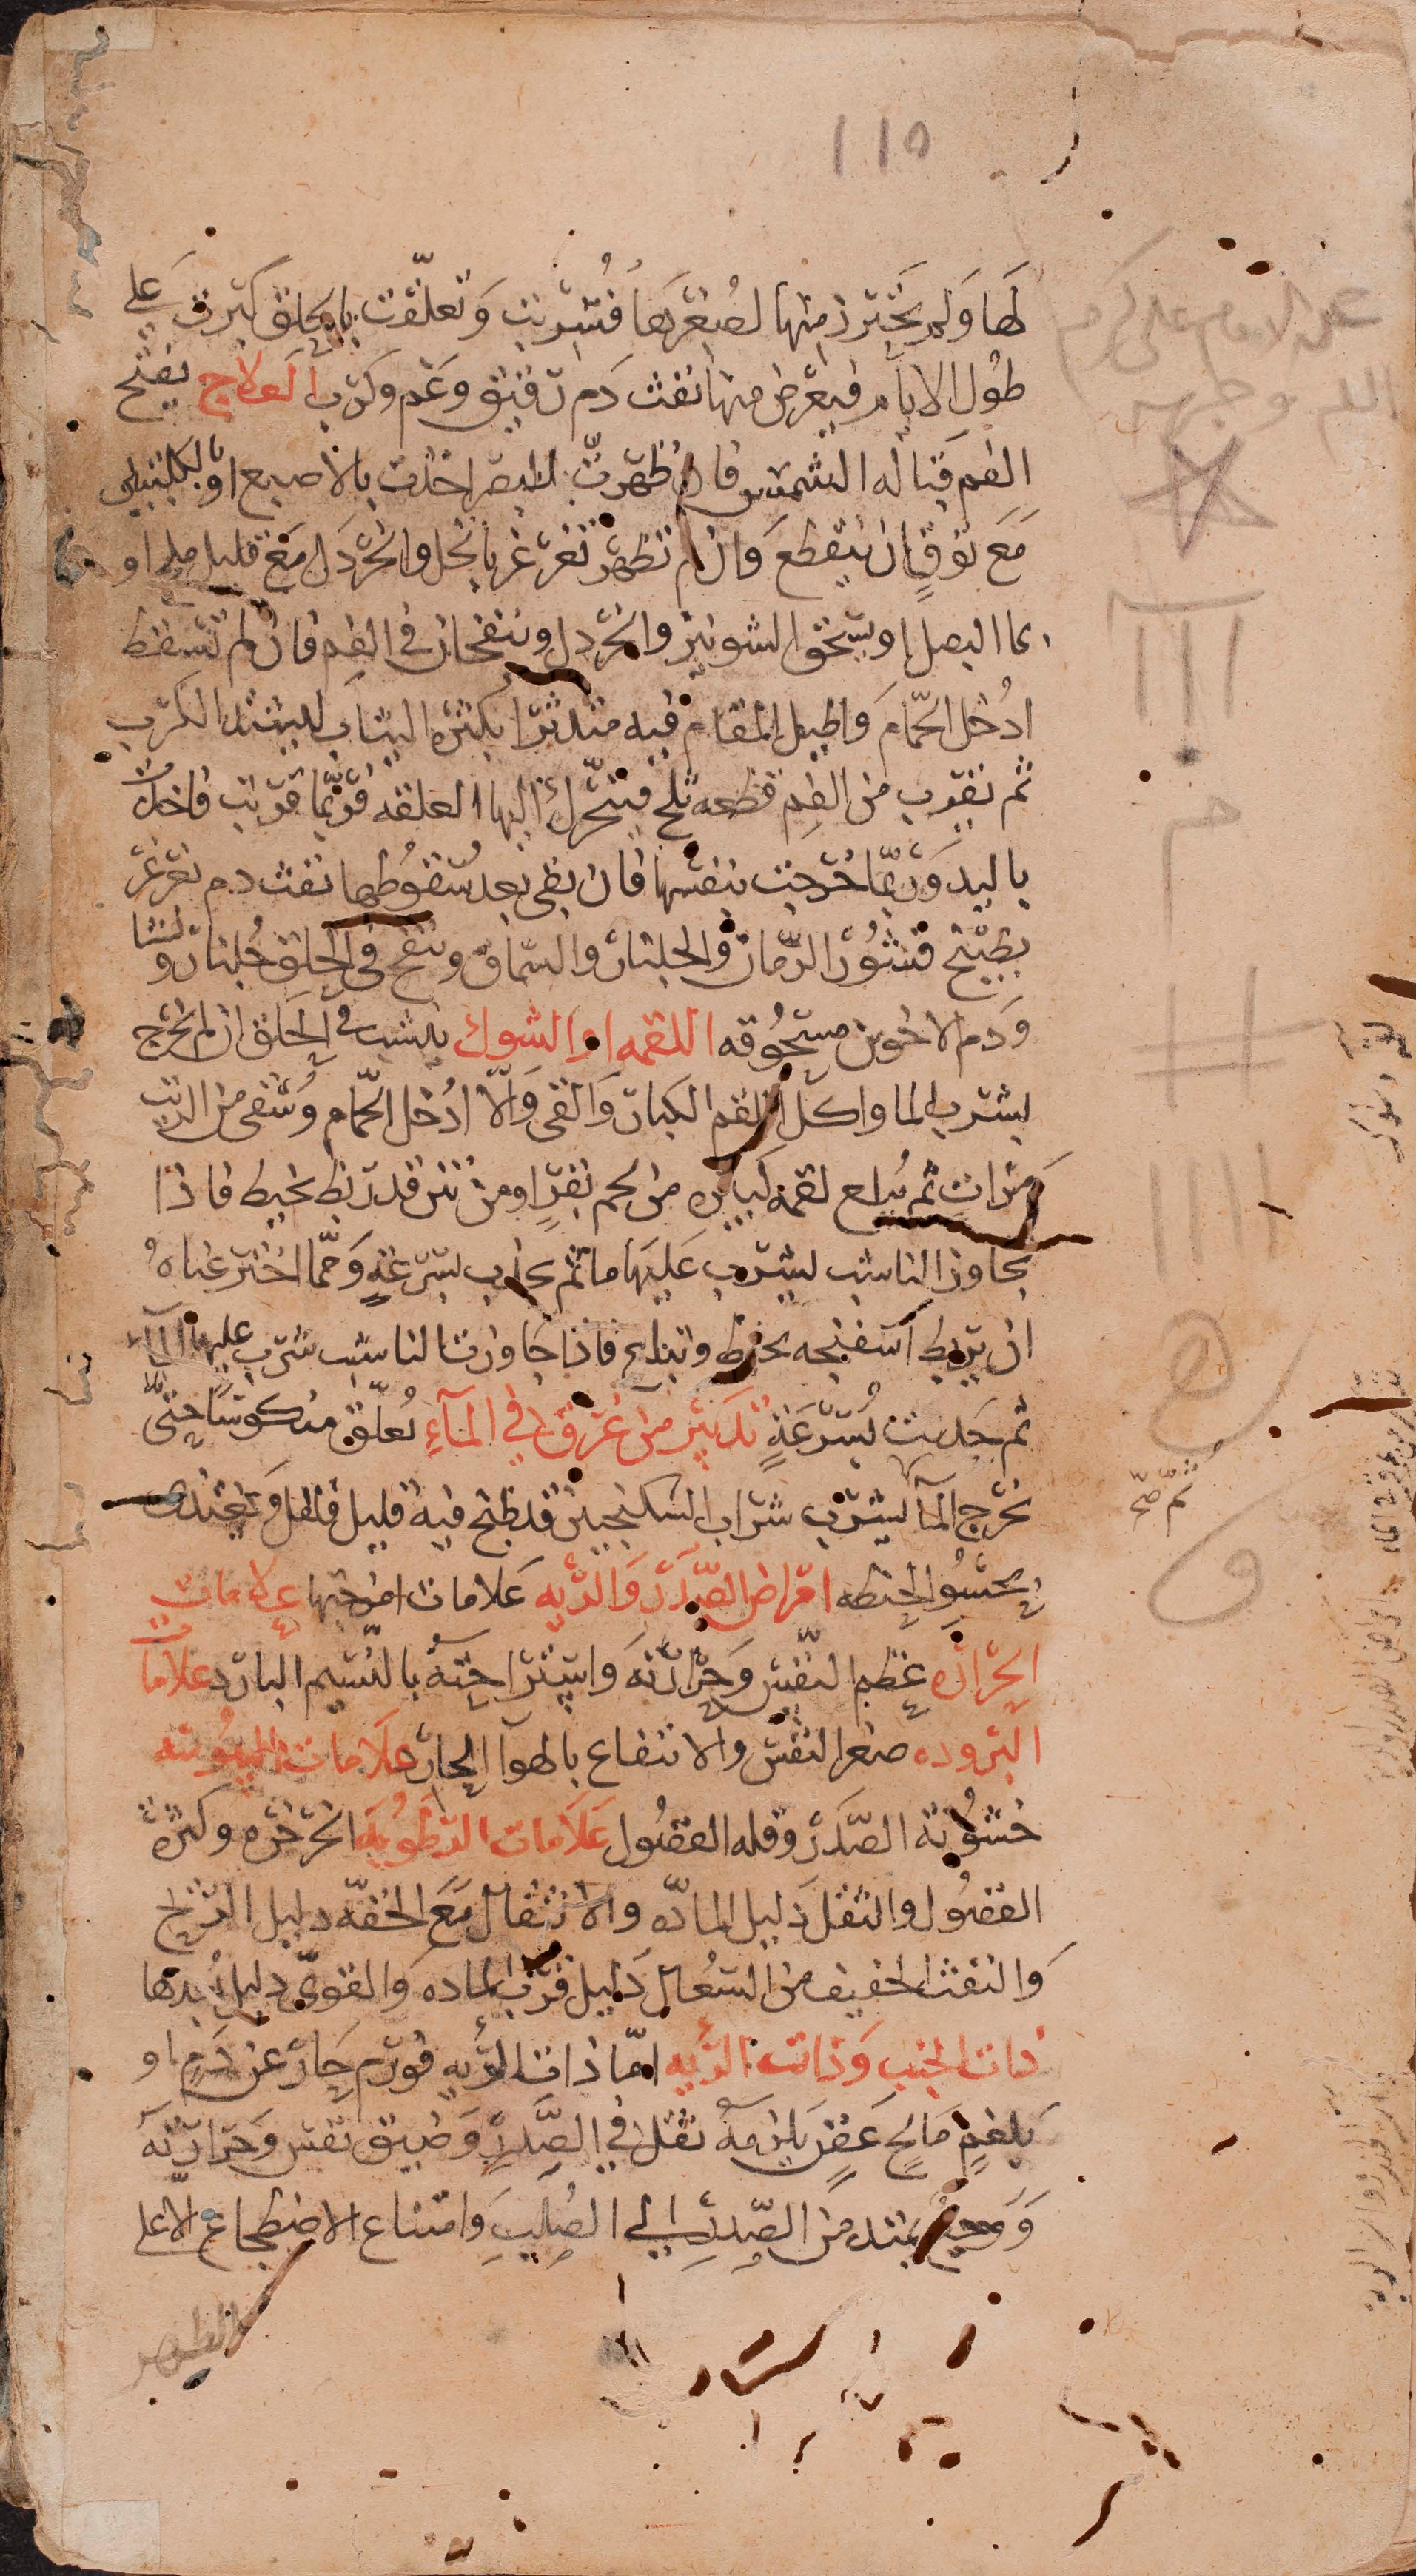 ١١٥
لها ولم يحترز منها لصغرها فشربت وتعلقت بالحلق كبرت على
طول الايام فيعرض منها نفث دم رقيق وغم وكرب العلاج يفتح
الفم قباله الشمس فان ظهرت للبصر اخذت بالاصبع او بالكلبتين
مع توقٍ ان ينقطع وان لم تظهر تغرغر بالخل والخردل مع قليل ملح او
بما البصل او يسحق الشونيز والخردل وينفخان في الفم فان لم تسقط
ادخل الحمام واطيل المقام فيه متدثرا بكثره الثياب ليشتد الكرب
ثم تقرب من الفم قطعه ثلج فتتحرك اليها العلقه فربما قربت فاخذت
باليد وربما خرجت بنفسها فان بقى بعد سقوطها نفث دم تغرغر
بطبيخ قشور الرمان والجلنار والسماق وينفخ في الحلق جلنار ونشا
ودم الاخوين مسحوقه اللقمه او الشوك ينشب في الحلق ان لم تخرج
بشرب الما واكل اللقم الكبار والقى والّا ادخل الحمام وسقى من الزيت
مرات ثم يبلع لقمه كبيره من لحم بقر او من تين قد ربط بخيط فاذا
جاوز الناشب ليشرب عليها ما ثم يجذب بسرعةٍ ومما اخترعناهُ
ان يربط اسفنجه بخيط وتبلع فاذا جاوزت الناشب شرب عليها الماء
ثم جذبت بسرعةٍ تدبير من غرق في الماءِ يُعلّق منكوسًا حتى
يخرج الما ليشرب شراب السكنجبين قد طبخ فيه قليل فلفل ويغتدى
بحسو الحنطه امراض الصدر والريه علامات امزجتها علامات
الحراره عظم النفس وحرارته واستراحته بالنسيم البارد علامات
البروده صغر النفس والانتفاع بالهوا الحار علامات اليبوسه
خشونة الصدر وقله الفضول علامات الرطوبه الخرخره وكثرة
الفضول والثقل دليل الماده والانتقال مع الخفّه دليل الريح
والنفث الخفيف من السعال دليل قرب الماده والقوىّ دليل بعدها
ذات الجنب وذات الريه امّا ذات الريه فورم حار عن دمٍ او
بلغمٍ مالحٍ عفنٍ يلزمه ثقل في الصدر وضيق نفس وحرارته
ووجع يمتد من الصدر الى الصلب وامتناع الاضطجاع الا على
الظهر
علم الامام على كرم
الله وجهه
ثم صح